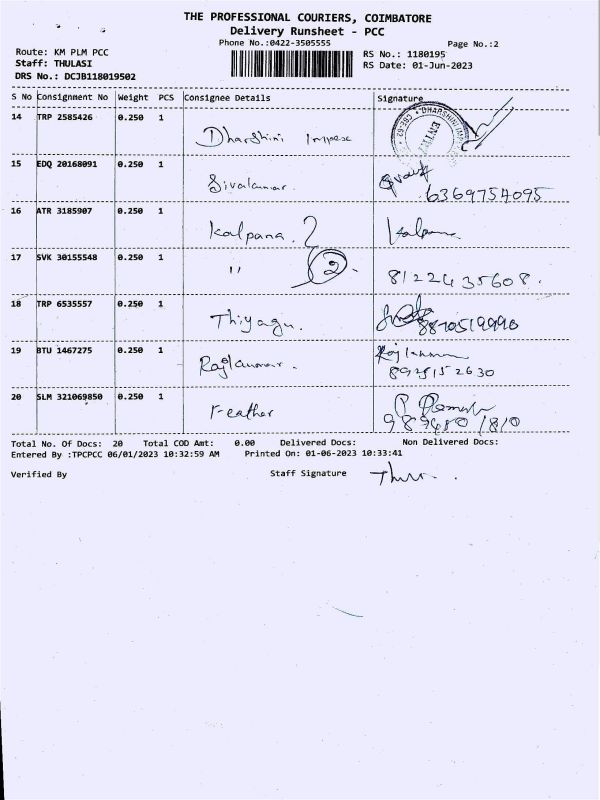 THE PROFESSIONAL COURIERS, COIMBATORE
Delivery Runsheet - PCC
Phone No.:0422-3505555
Page No.:2
Route: KM PLM PCC
RS No.: 1180195
Staff: THULASI
RS Date: 01-Jun-2023
DRS No.: DCJB118019502
S No Consignment No Weight PCS Consignee Details Signature
14 TRP 2585426 0.250 1
Dharshini Impex
15 EDQ 20168091 0.250 1
Sivakumar.
6369754095
16 ATR 3185907 0.250 1
Kalpana. Kalpana
17 SVK 30155548 0.250 1
" 2. 8122435608.
18 TRP 6535557 0.250 1
Thiyagu. 8870519990
19 BTU 1467275 0.250 1
Rajkumar. Rajkumar
8925152630
20 SLM 321069850 0.250 1
Feather P Ramesh
Total No. Of Docs: 20 Total COD Amt: 0.00 Delivered Docs: Non Delivered Docs:
Entered By :TPCPCC 06/01/2023 10:32:59 AM Printed On: 01-06-2023 10:33:41
Verified By Staff Signature